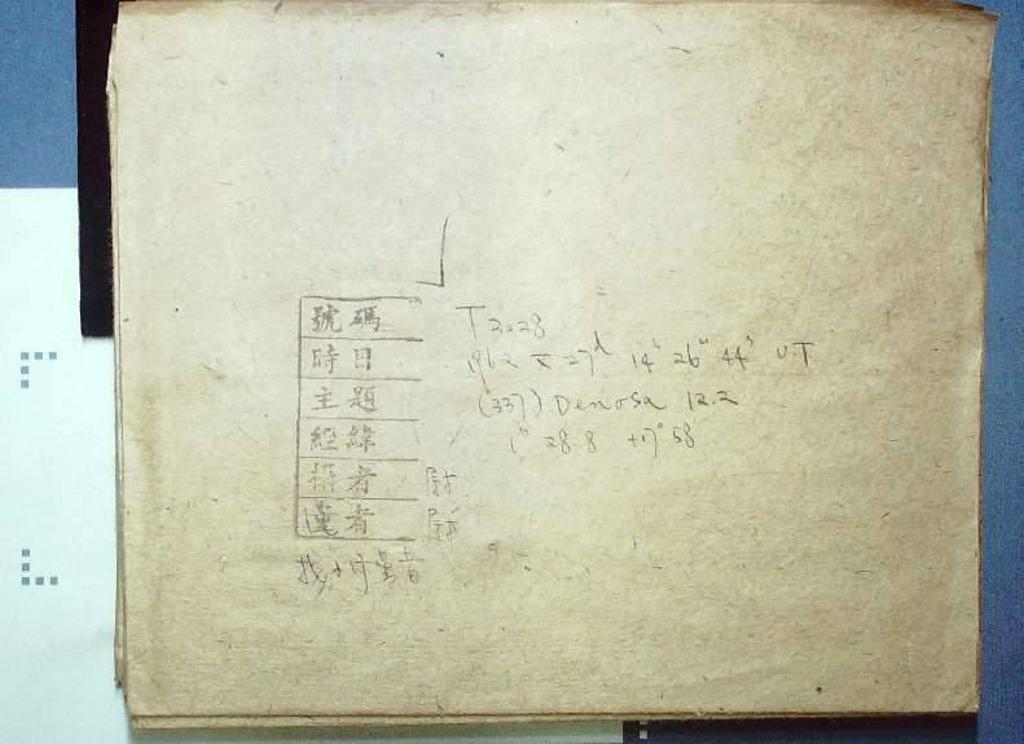 號碼 T 2028
時日 1962 X 27ᵈ 14ʰ 26ᵐ 44ˢ UT
主題 (337) Devosa 12.2
經緯 1ʰ 28.8 +17° 58'
攝者
者
找小行星者